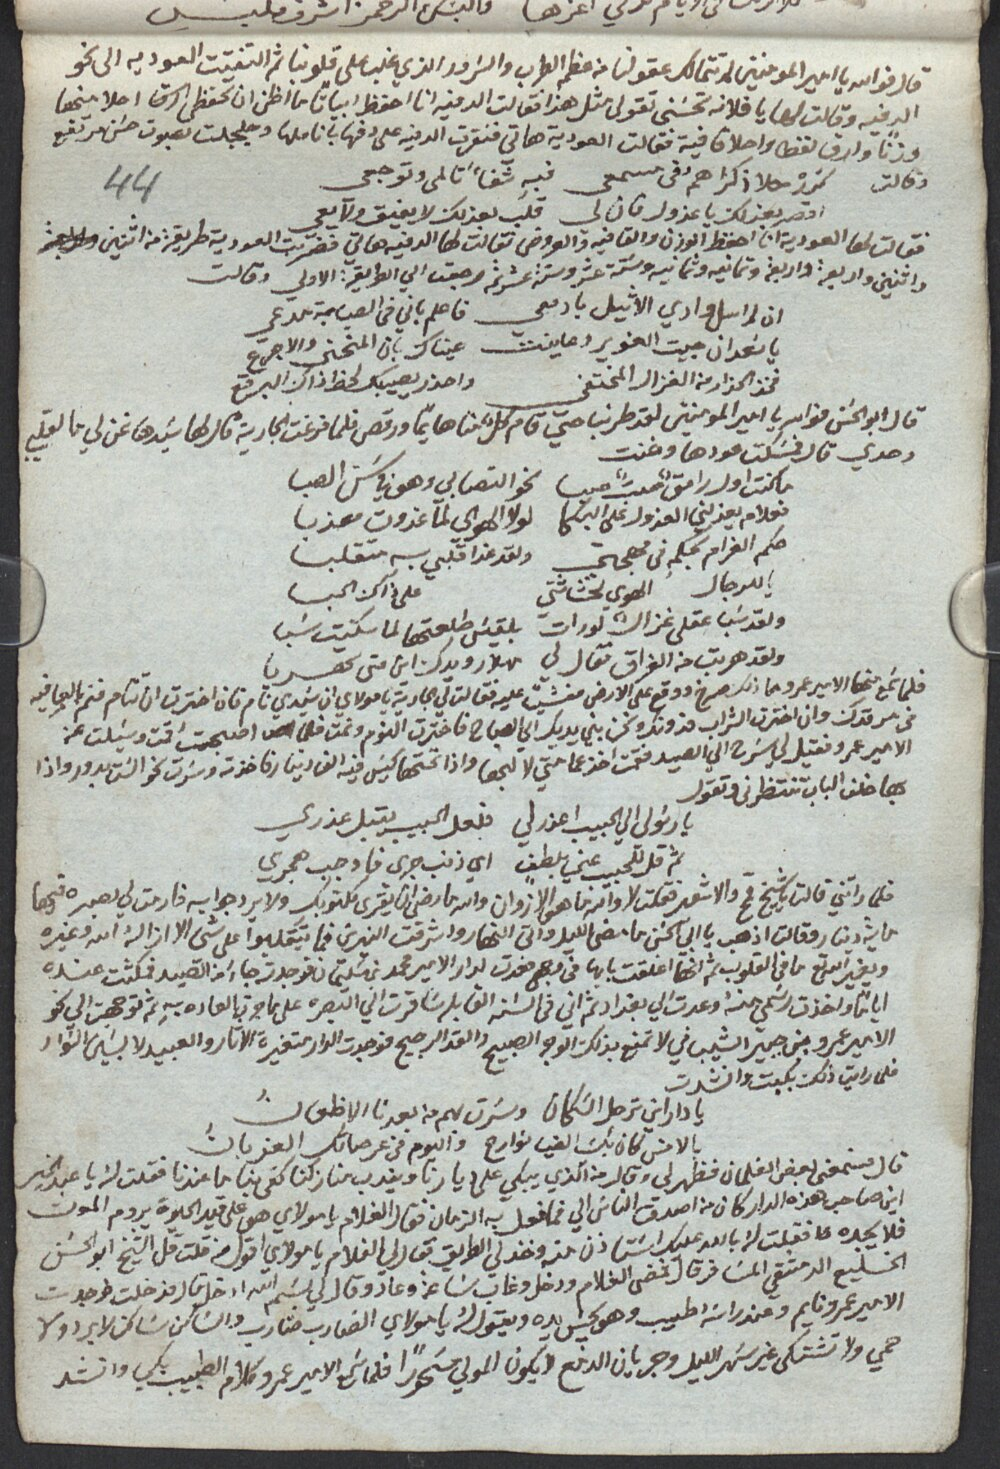 قال فوالله يا امير المومنين لم نتمالك عقولنا من عظم الطرب والسرور الذي غلب على قلوبنا ثم التفتت العوديه الى نحو
الدفيه وقالت لها يا فلانه تحسني تقولي مثل هذا فقالت الدفيه انا احفظ ابياتا ما اظن ان تحفظي ارق احلا منها
وزنا وارق لفظا واحلا قافية فقالت العودية هاتي فنقرت الدفيه على دفها باناملها وجلجلت بصوت حسن مرتفع
وقالت كرر حلا ذكراهم في مسمعي فبه شفاء تالمي وتوجعي
44
اقصر بعذلك يا عذول فان لي قلب بعذلك لا يفيق ولا يعي
فقالت لها العودية انا احفظ الوزن والقافيه والعروض فقالت لها الدفيه هاتي فضربت العودية طريقة من اثنين
واثنين واربعة واربعة وثمانيه وثمانيه وستة عشر وستة عشر ثم رجعت الي الطريقة الاولى وقالت
ان لم اسل وادي الاثيل بادمعي فاعلم باني في الصبابة مدعي
يا سعد ان جيت الغوير وعاينت عيناك بان المنحنى والاجرع
فخذ الحذار من الغزال المختفي واحذر يصيبك لحظ ذاك البرقع
قال ابو الحسن فوالله يا امير المومنين لقد طربنا حتي قام كل منا هايما ورقص فلما فرغت الجارية قال لها سيدها غن لي يا
وحدي قال فمسكت عودها وغنت
ما كنت اول رامق حبيبا نحو التصابي وهو في سن الصبا
فعلام يعذلني العذول على البكا لولا الهوي لما غدوت معذبا
حكم الغرام بحكمه في مهجتي ولقد غدا قلبي به متقلبا
يا للرجال الهوي بحشاشتي على ذاك الخبا
ولقد سبا عقلي غزال لو رات بلقيس طلعتها لما سكنت سبا
ولقد هربت من الفراق فقال لي مهلا رويدك اين متى مهربا
فلما سمع منها الامير عمرو ما ذكر صرخ ووقع على الارض مغشيا عليه فقالت لي الجارية يا مولاي ان سيدي نام فان اخترت ان تنام فنم بالعافيه
في مرقدك وان اخترت الشراب فدونك ونحن بين يديك الى الصباح فاخترت النوم ونمت فلما اصبحت افقت وسئلت عن
الامير عمرو فقيل لي سرح الي الصيد فقمت اخذ عمامتي لالبسها واذا تحتها كيس فيه الف دينار فاخذته وسرت نحو الست بدور واذا
بها خلف الباب تنتظرني وتقول
يا رسولي الي الحبيب اعذر لي فلعل الحبيب يقبل عذري
ثم قل للحبيب عني بلطف اي ذنب جرى فاوجب هجري
فلما راتني قالت يا شيخ قمح والا شعير فقلت لا والله ما هو الا زوان والله ما رضي ان يقرى مكتوبك ولا يرد جوابه فارمت لي بصره فيها
ماية دينار وقالت اذهب يا ابي الحسن ما مضى الليل واتى النهار واشرقت النهرين فما يتقلبوا على شئ الا ازاله الله وغيره
ويغير الله ما في القلوب ثم انها اغلقت بابها في وجهي فعدت لدار الامير محمد بن سليمان فوجدته جاء من الصيد فمكثت عنده
اياما واخذت رسمي منه وعدت الي بغداد ثم اني في السنه القابله سافرت الي البصره على ما جرت العاده به ثم توجهت الي نحو
الامير عمرو بن جبير الشيباني لاتمتع بذلك الوجه الصبيح والقد الرجيح فوجدت الدار متغيرة الاثار والعبيد لابسين السواد
فلما رايت ذلك بكيت وانشدت
يا دار اين ترحل السكان وسرت بهم من بعدنا الاظعان
بالامس كان بك الضيا نوارج واليوم في عرصاتك الغربان
قال فسمعني بعض الغلمان فظهر لي وقال من الذي يبكي على ديارنا ويندب منازلنا كفى بنا ما عندنا فقلت له يا عبد الخير
ان صاحب هذه الدار كان من اصدق الناس الي فما فعل به الزمان فقال الغلام يا مولاي هو على قيد الحيوة يروم الموت
فلا يجده فقلت له بالله عليك استاذن منه وخذ لي الطريق فقال لي الغلام يا مولاي اقول من قلت قل الشيخ ابو الحسن
الخليع الدمشقي المسافر قال فمضى الغلام ودخل وغاب ساعة وعاد وقال لي بسم الله ادخل قال فدخلت فوجدت
الامير عمرو نايم وعند راسه طبيب وهو يجس يده ويقول له يا مولاي الضارب ضارب والساكن ساكن لا برد ولا
حمي ولا تشتكي غير سهر الليل وجريان الدمع لا يكون المولي مسحورا فلما سمع الامير عمرو كلام الطبيب بكي وانشد